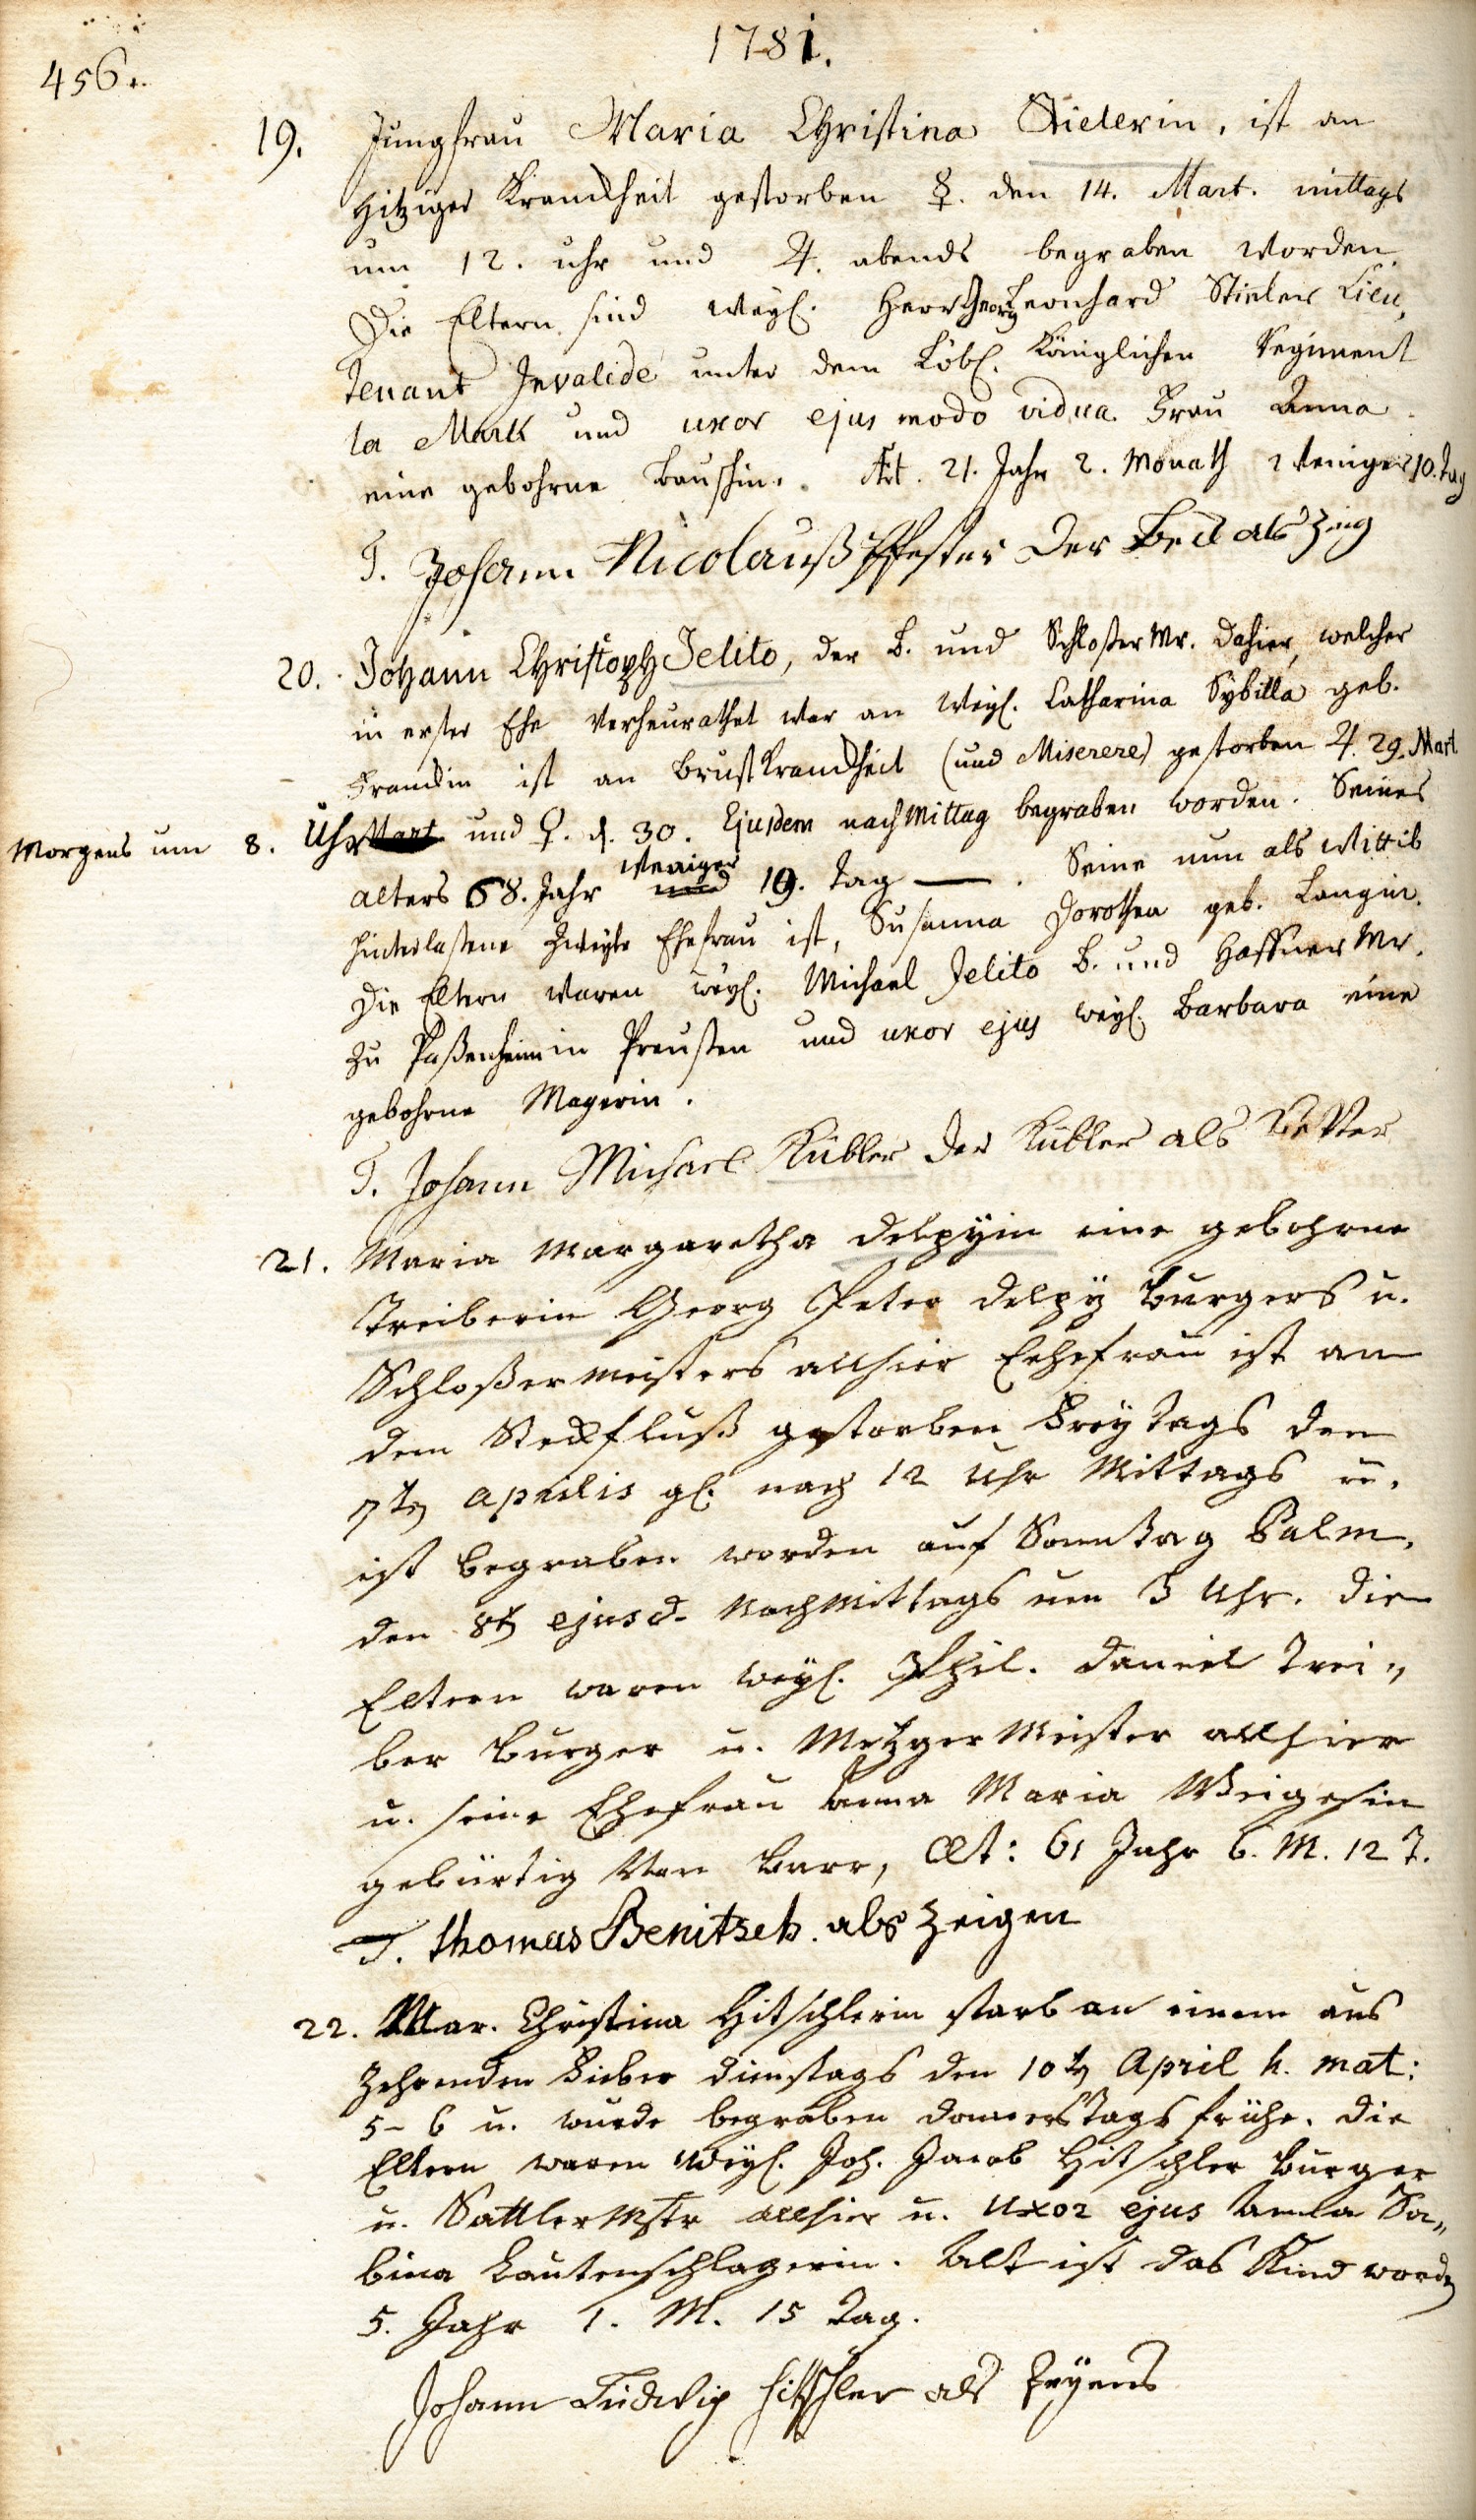 1781.
456.
19. Jungfrau Maria Christina Stielerin, ist an
hitziger Kranckheit gestorben ☿. den 14. Mart. mittags
um 12. uhr und ♃. abends begraben worden.
Die Eltern sind weyl. Herr Georg Leonhard Stieler Lieu,
tenant Invalide unter dem Löbl. Königlichen Regiment
la Mark und uxor ejus modo vidua Frau Anna
eine gebohrne Bauschin. Æt. 21. Jahr 2. Monath weniger 10. Tag
T. Johann Nicolauß Pfester der Beck als Zeug
20. Johann Christoph Jelito, der B. und Schloßer Mr. dahier, welcher
in erster Ehe verheurathet war an weyl. Catharina Sybilla geb.
Franckin ist an Brustkranckheit (und Miserere) gestorben ♃. 29. Mart
Morgens um 8. Uhr Mart und ♀. d. 30. Ejusdem nachmittag begraben worden. Seines
alters 68. Jahr weniger und 19. Tag —. Seine nun als Wittib
hinterlaßene zweyte Ehefrau ist, Susanna Dorothea geb. Langin.
Die Eltern waren weyl. Michael Jelito B. und Haffner Mr.
zu Paßenheim in Preußen und uxor ejus weyl. Barbara eine
gebohrne Magerin.
T. Johann Michael Kübler der Kübler als Vetter
21. Maria Margaretha Delpÿin eine gebohrne
Treiberin Georg Peter Delpÿ Burgers u.
Schloßermeisters allhier Ehefrau ist an
dem Steckfluß gestorben Freytags den
7ten Aprilis gl. nach 12 Uhr Mittags u.
ist begraben worden auf Sonntag Palm.
den 8ten ejusd. Nachmittags um 3 Uhr. Die
Eltern waren weyl. Phil. Daniel Trei„
ber Burger u. Metzger Meister allhier
u. seine Ehefrau Anna Maria
gebürtig von Barr, Æt: 61 Jahr 6. M. 12 T.
T. Thomas Benitsch. als Zeigen
22. Mar. Christina Hitschlerin starb an einem aus
zehrenden Fieber Dienstags den 10ten April h. mat:
5–6 u. wurde begraben Donnerstags frühe. Die
Eltern waren weyl. Joh. Jacob Hitschler Burger
u. Sattler Mstr allhier u. Uxor ejus Anna Sa„
bina Lautenschlagerin. Alt ist das Kind worden
5. Jahr 1. M. 15 Tag.
Johann Ludwig Hitschler als Zeyens